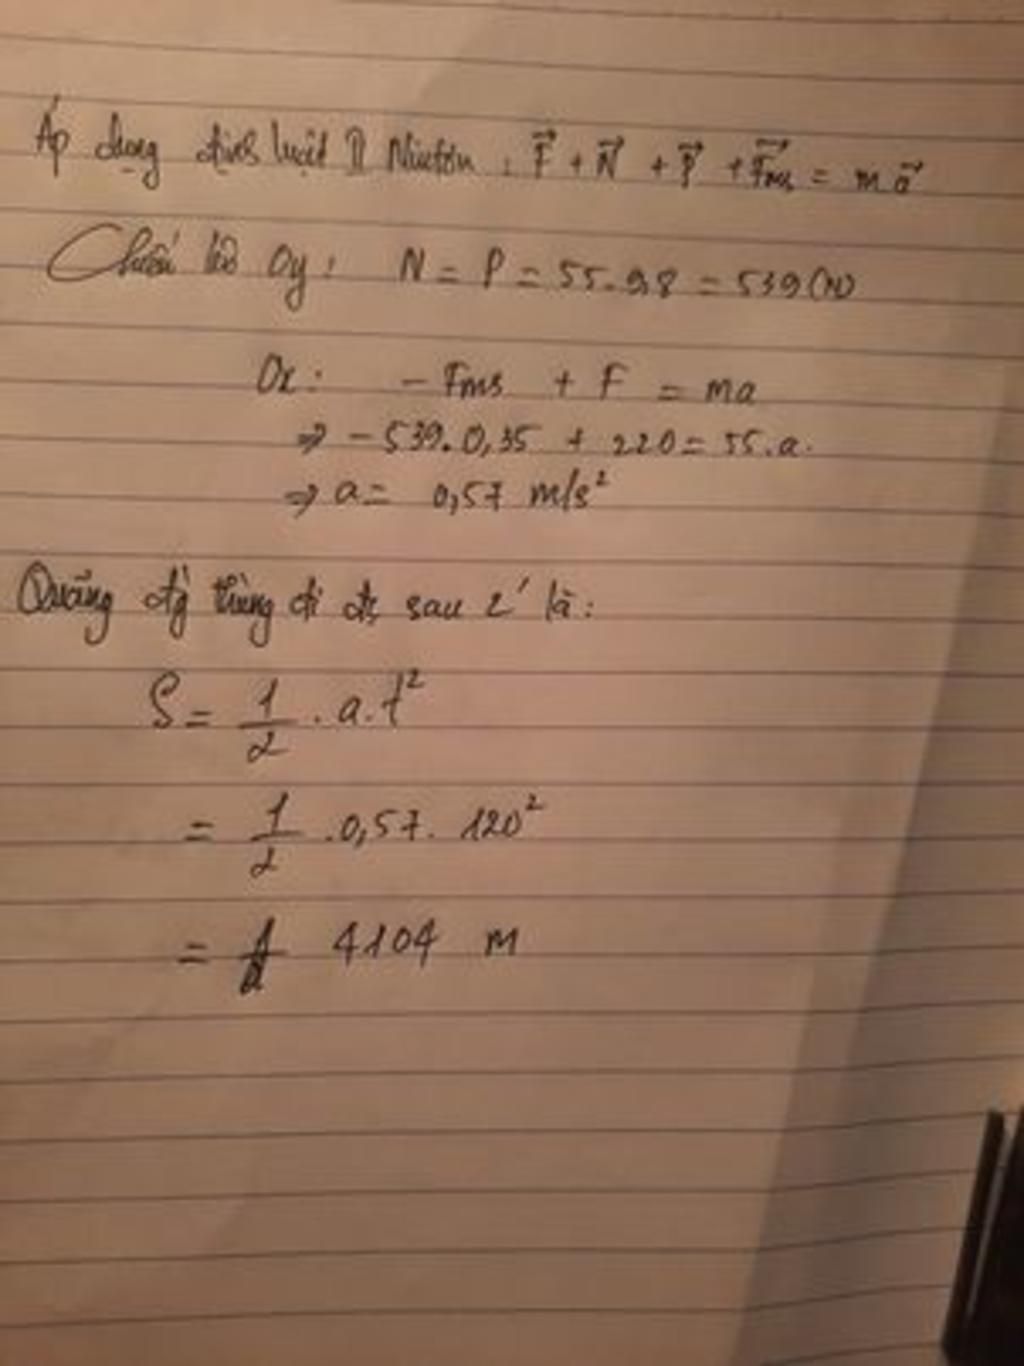 Áp dụng định luật II Niutơn : F⃗ + N⃗ + P⃗ + F⃗ms = ma⃗
Chiếu lên Oy : N = P = 55.9,8 = 539 (N)
Ox : - Fms + F = ma
⇒ - 539.0,35 + 220 = 55.a.
⇒ a = 0,57 m/s²
Quãng đg thùng đi đc sau 2' là :
S = 1/2 . a.t²
= 1/2 .0,57. 120²
= 4104 m